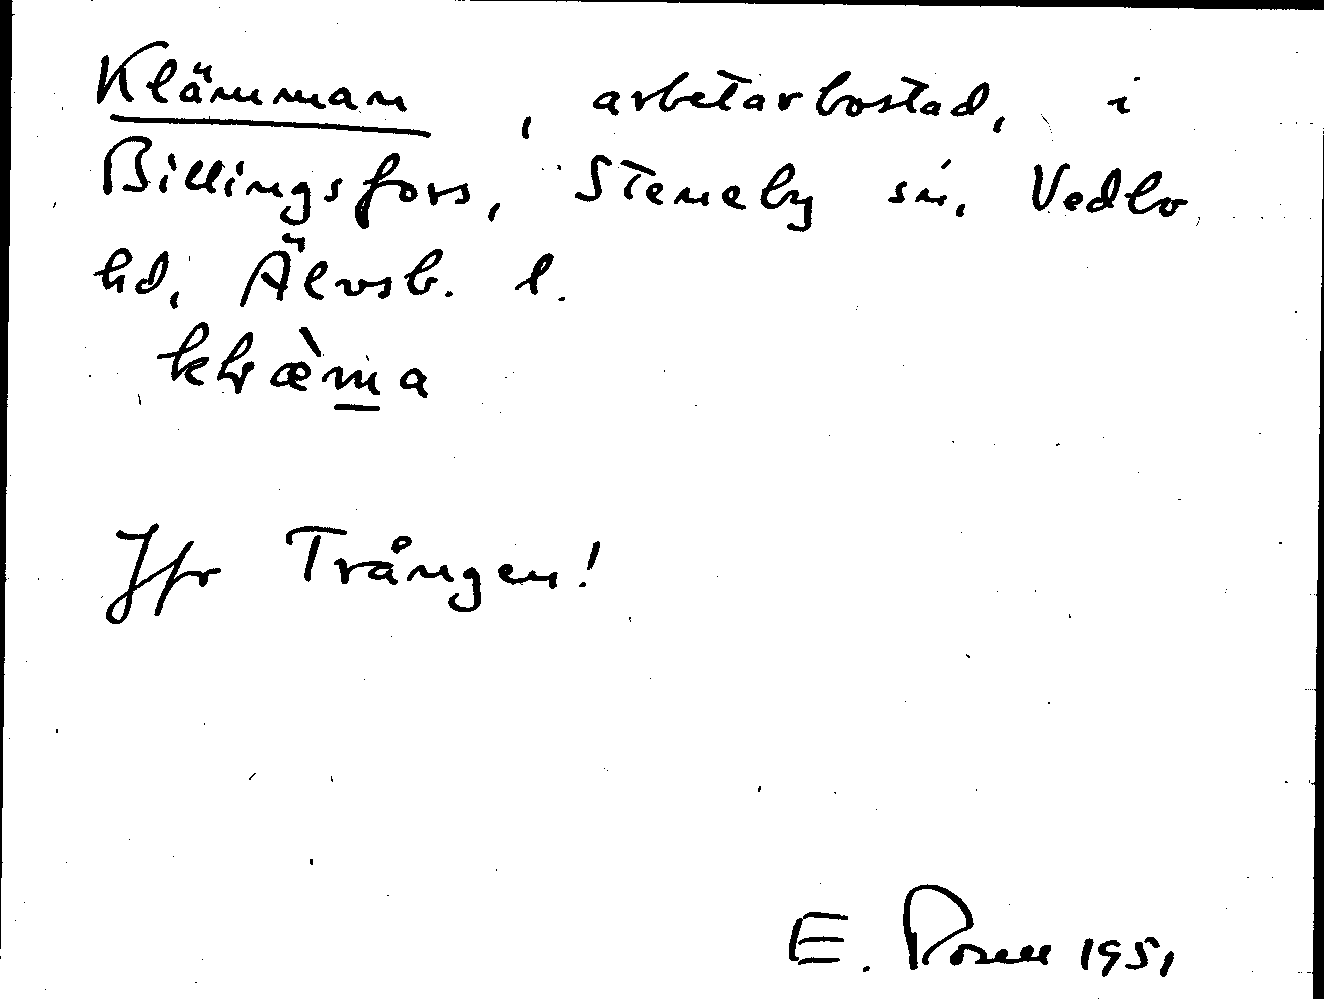 Klämman, arbetarbostad, i
Billingsfors, Steneby sn, Vedbo
hd, Älvsb. l.
Jfr Trången!
E. Rosell 1951